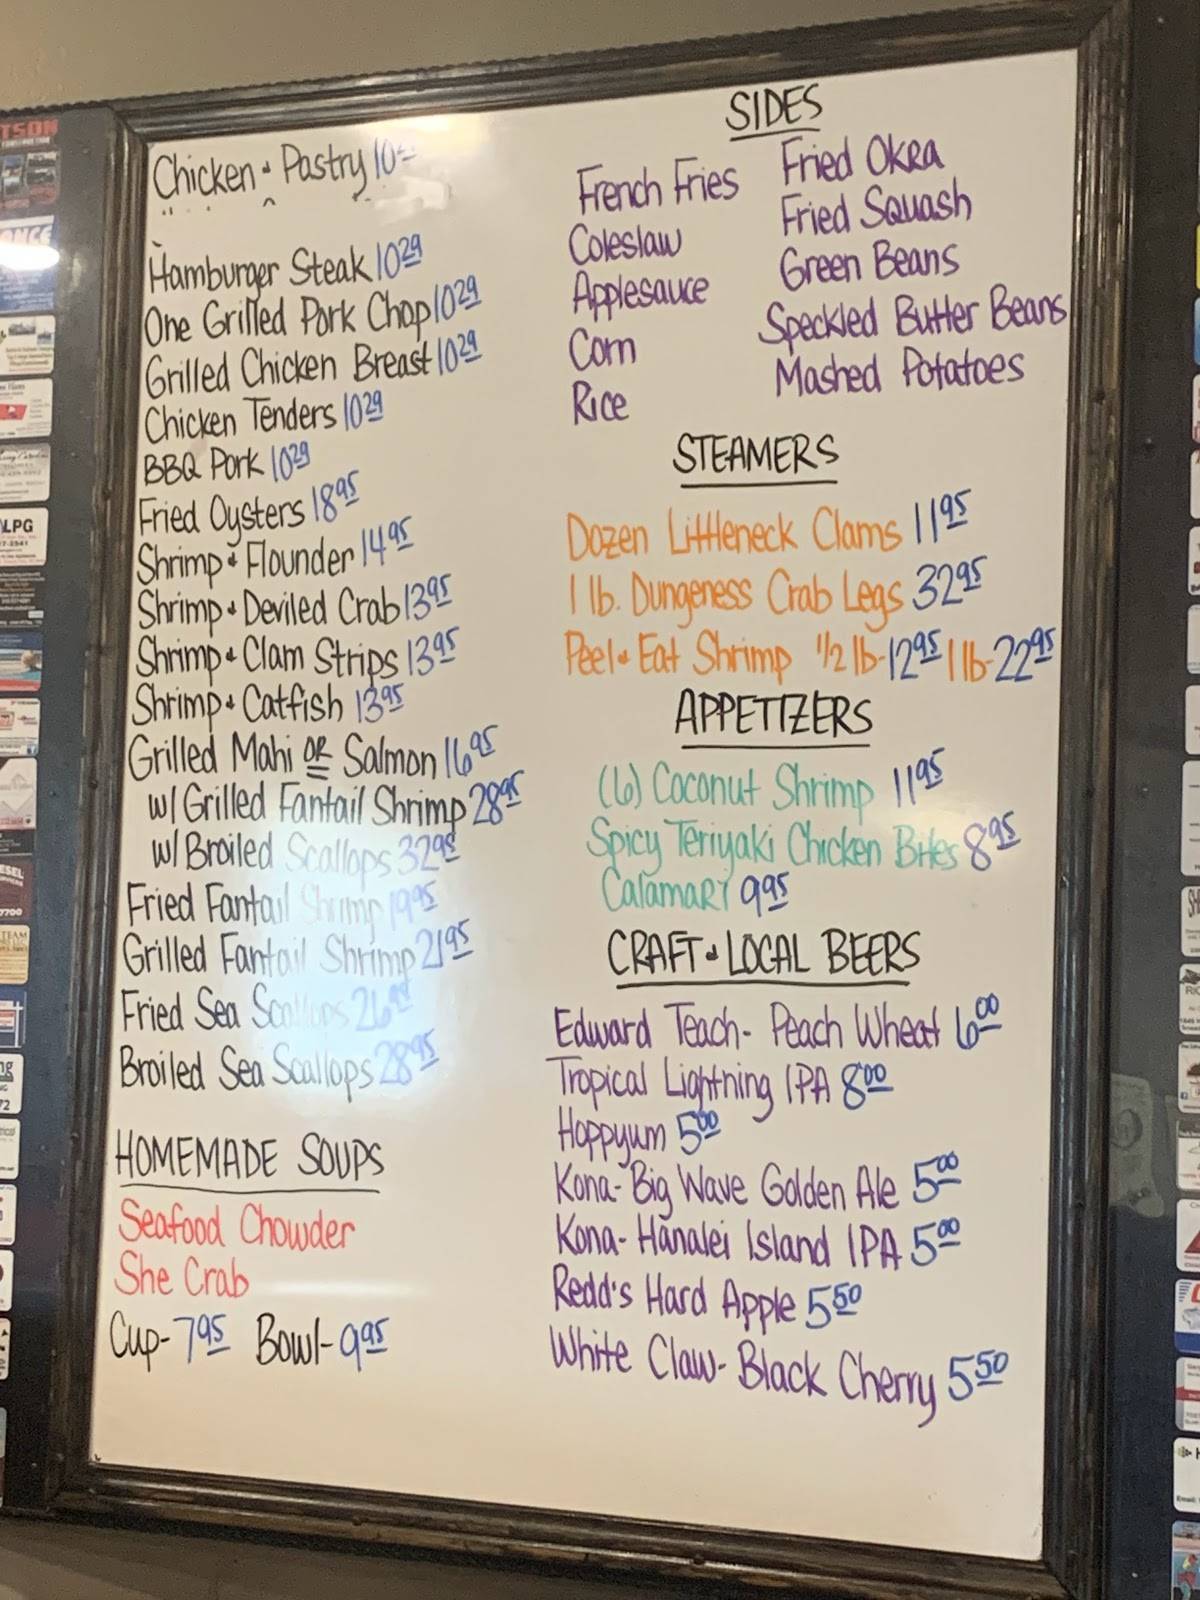 Chicken & Pastry
Hamburger Steak 10 29
One Grilled Pork Chop 10 29
Grilled Chicken Breast 10 29
Chicken Tenders 10 29
BBQ Pork 10 29
Fried Oysters 18 95
Shrimp & Flounder 14 95
Shrimp & Deviled Crab 13 95
Shrimp & Clam Strips 13 95
Shrimp & Catfish 13 95
Grilled Mahi OR Salmon 16 95
w/ Grilled Fantail Shrimp 28 95
w/ Broiled Scallops 32 95
Fried Fantail Shrimp 19 95
Grilled Fantail Shrimp 21 95
Fried Sea Scallops 26 95
Broiled Sea Scallops 28 95
HOMEMADE SOUPS
Seafood Chowder
She Crab
Cup - 7 95 Bowl - 9 95
SIDES
French Fries
Coleslaw
Applesauce
Corn
Rice
Fried Okra
Fried Squash
Green Beans
Speckled Butter Beans
Mashed Potatoes
STEAMERS
Dozen Littleneck Clams 11 95
1 lb. Dungeness Crab Legs 32 95
Peel & Eat Shrimp 1/2 lb - 12 95 1 lb - 22 95
APPETIZERS
(6) Coconut Shrimp 11 95
Spicy Teriyaki Chicken Bites 8 95
Calamari 9 95
CRAFT & LOCAL BEERS
Edward Teach - Peach Wheat 6 00
Tropical Lightning IPA 8 00
Hoppyum 5 00
Kona - Big Wave Golden Ale 5 00
Kona - Hanalei Island IPA 5 00
Redd's Hard Apple 5 50
White Claw - Black Cherry 5 50
LPG